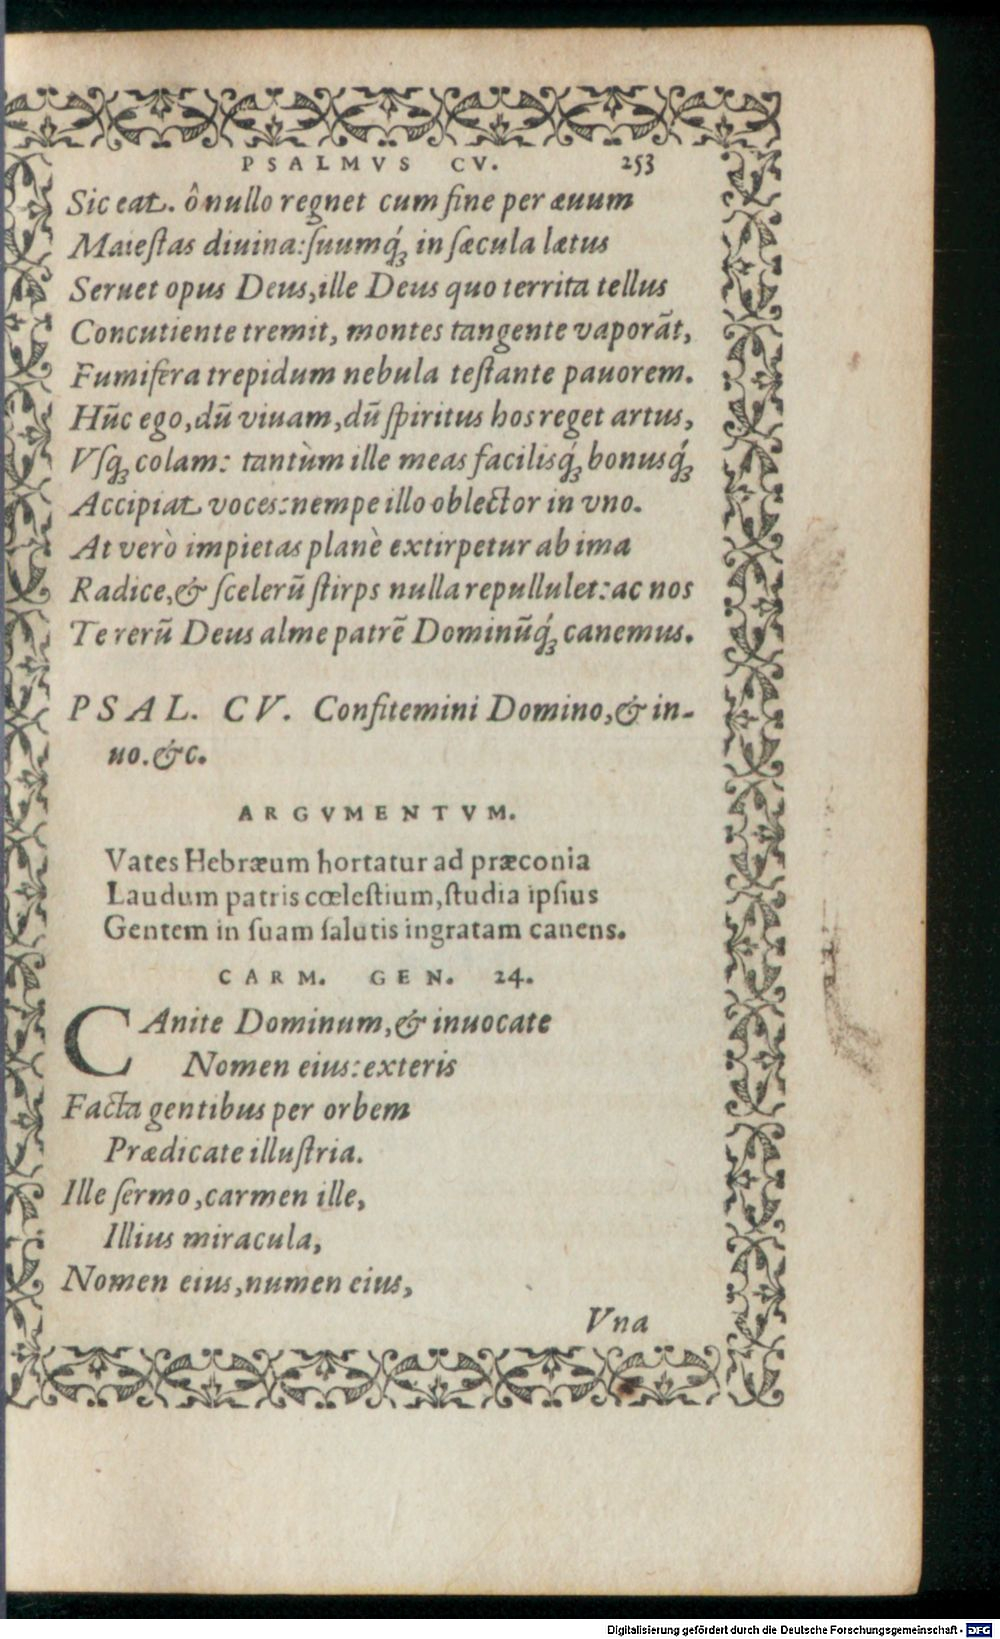 PSALMVS CV. 253
Sic eat. ô nullo regnet cum fine per æuum
Maiestas diuina: ſuumq́ꝫ in ſæcula lætus
Seruet opus Deus, ille Deus quo territa tellus
Concutiente tremit, montes tangente vaporãt,
Fumifera trepidum nebula teſtante pauorem.
Hũc ego, dũ viuam, dũ ſpiritus hos reget artus,
Vſqꝫ colam: tantùm ille meas facilisq́ꝫ bonusq́ꝫ
Accipiat voces: nempe illo oblector in vno.
At verò impietas planè extirpetur ab ima
Radice, & ſcelerũ ſtirps nulla repullulet: ac nos
Te rerũ Deus alme patrẽ Dominũq́ꝫ canemus.
PSAL. CV. Confitemini Domino, & in-
uo. &c.
ARGVMENTVM.
Vates Hebræum hortatur ad præconia
Laudum patris cœleſtium, ſtudia ipſius
Gentem in ſuam ſalutis ingratam canens.
CARM. GEN. 24.
CAnite Dominum, & inuocate
Nomen eius: exteris
Facta gentibus per orbem
Prædicate illuſtria.
Ille ſermo, carmen ille,
Illius miracula,
Nomen eius, numen eius,
Vna
Digitalisierung gefördert durch die Deutsche Forschungsgemeinschaft - DFG